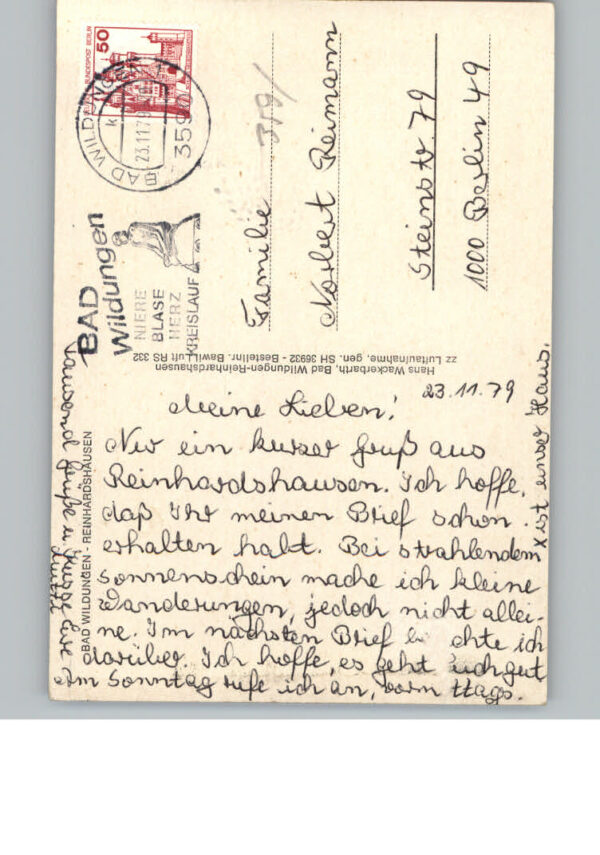 50
DEUTSCHE BUNDESPOST BERLIN
BAD WILDUNGEN 1
23.11.79
3590
BAD
Wildungen
NIERE
BLASE
HERZ
KREISLAUF
359/
Familie
Norbert Reimann
Steinstr 79
1000 Berlin 49
Hans Wackerbarth, Bad Wildungen-Reinhardshausen
zz Luftaufnahme, gen. SH 36932 - Bestellnr. BawiLuft RS 332
BAD WILDUNGEN - REINHARDSHAUSEN
23.11.79
Meine Lieben!
Nur ein kurzer Gruß aus
Reinhardshausen. Ich hoffe,
daß Ihr meinen Brief schon
erhalten habt. Bei strahlendem
Sonnenschein mache ich kleine
Wanderungen, jedoch nicht allei-
ne. Im nächsten Brief ich
darüber. Ich hoffe, es geht Euch gut
Am Sonntag rufe ich an, vorm ttags.
Tausend Grüße u. Küsse
x ist unser Haus.